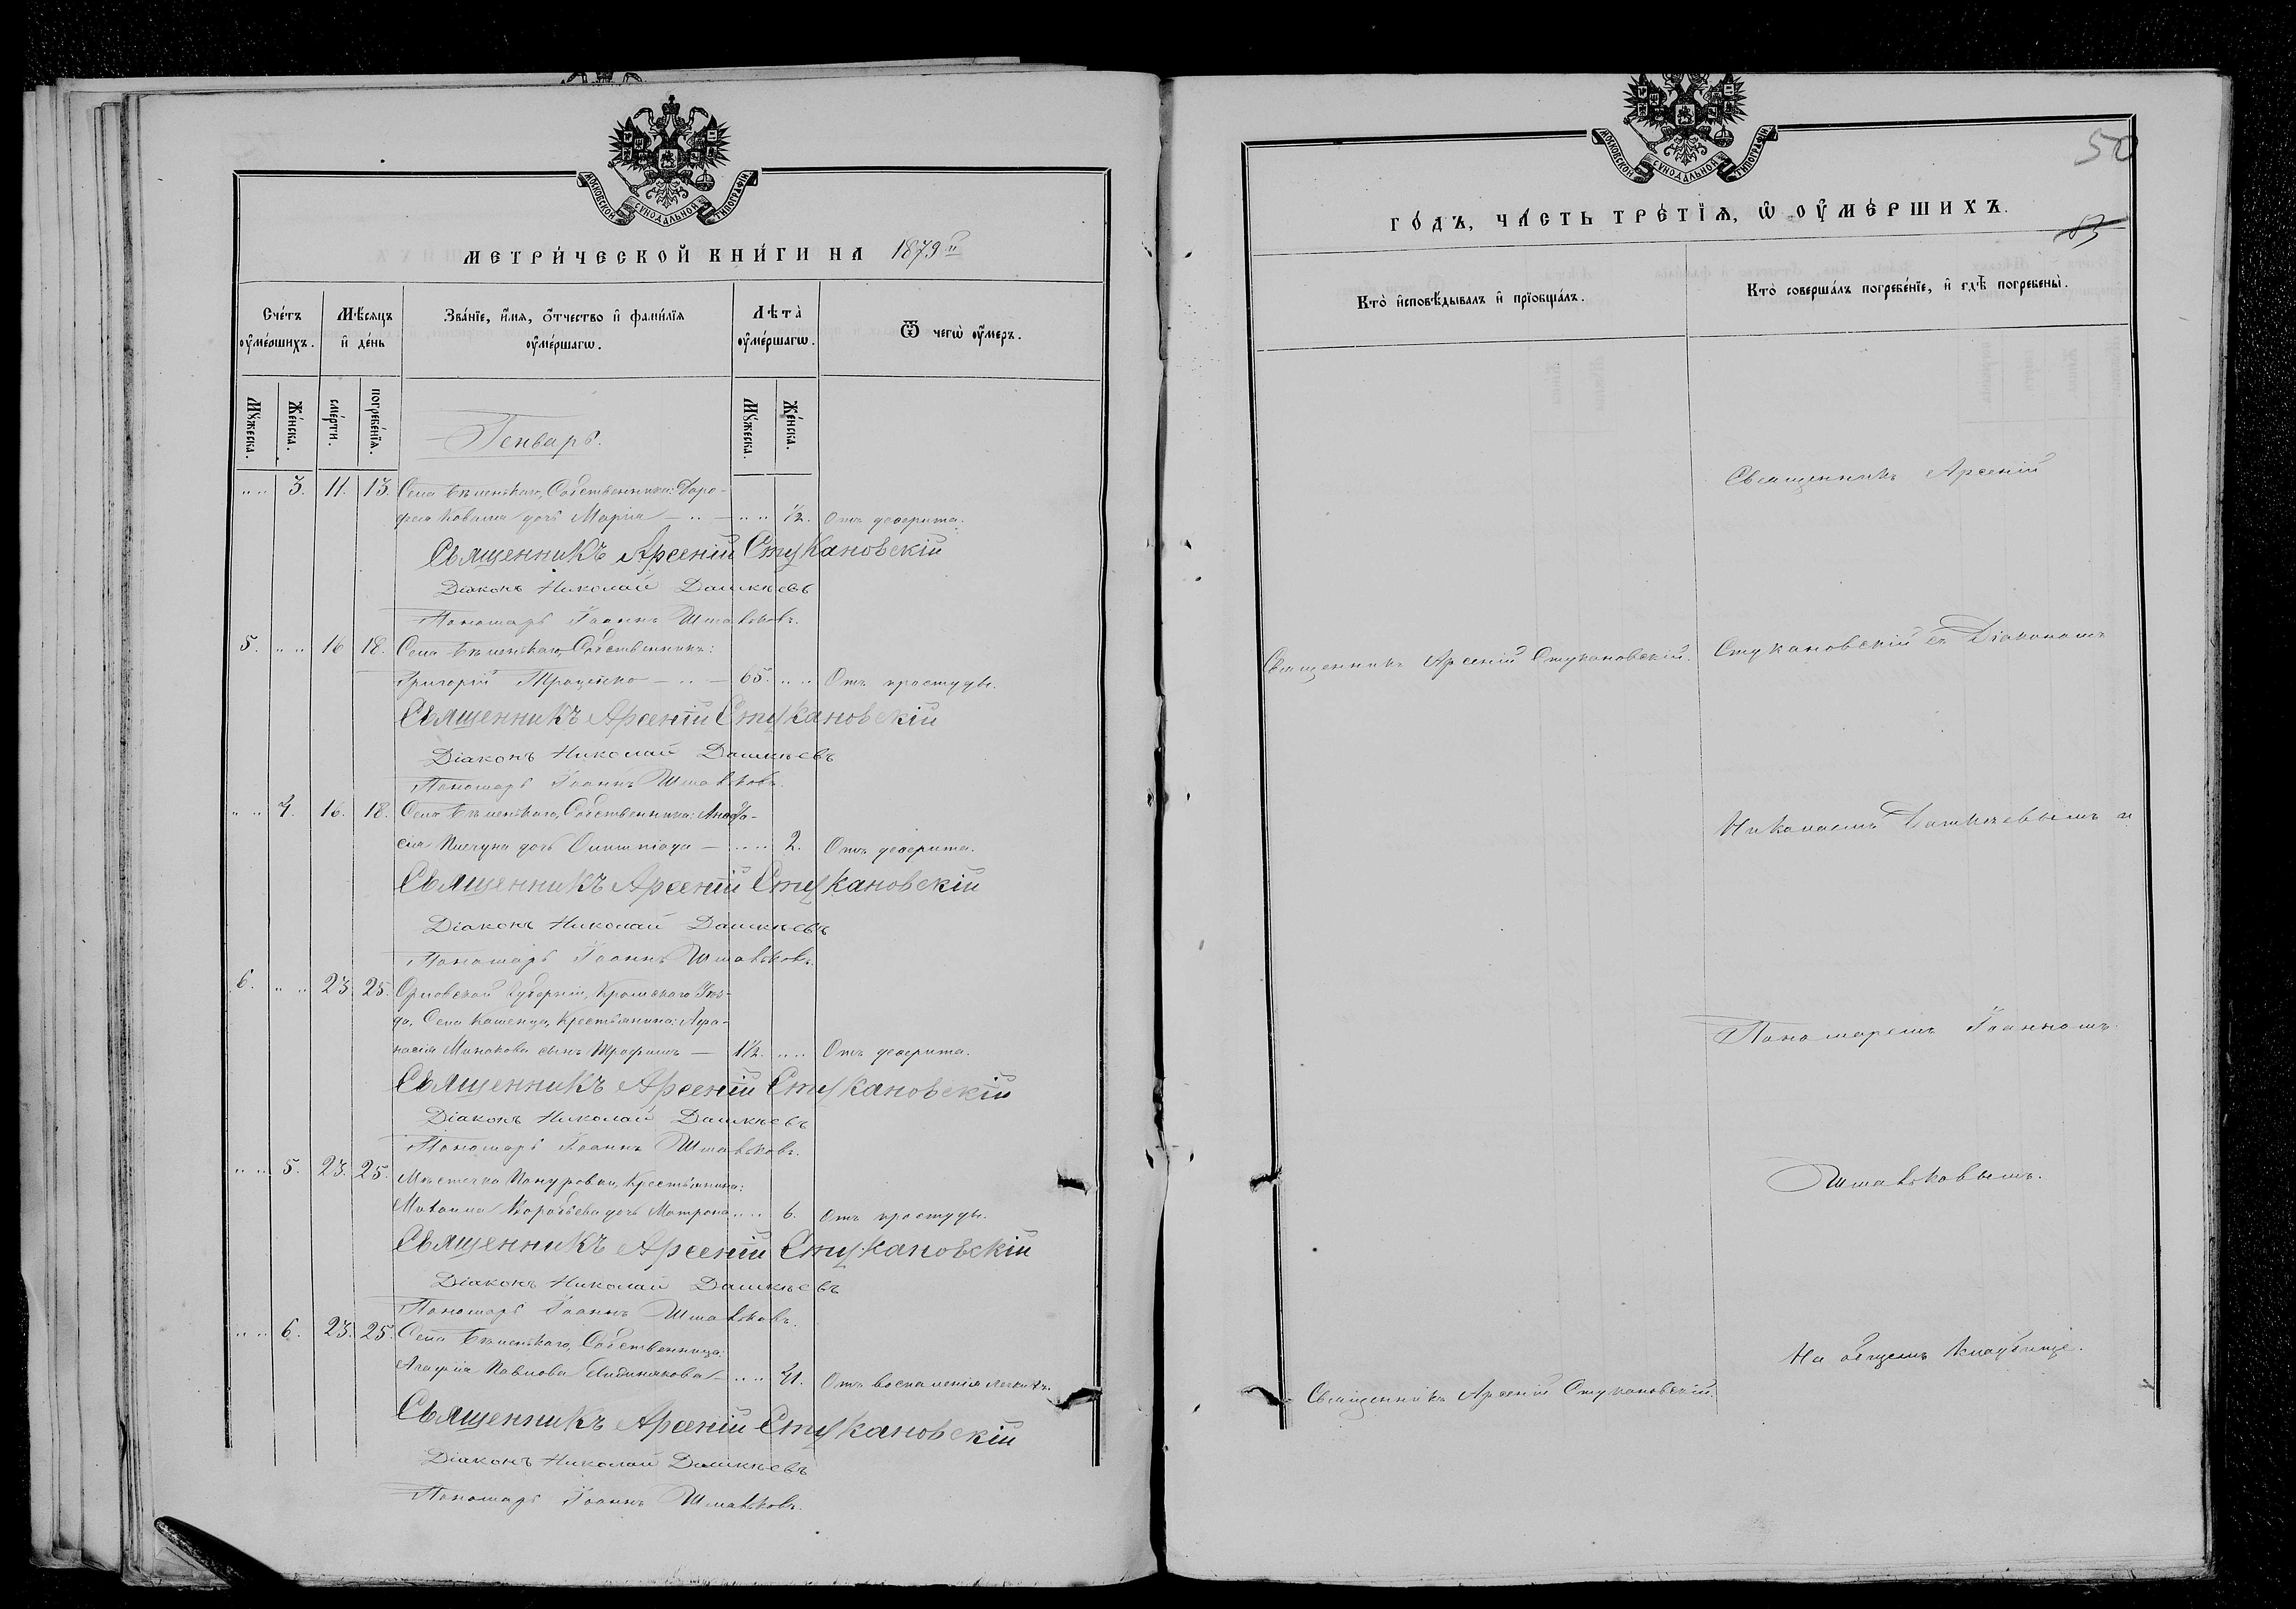 МОСКОВСКОЙ СѴНОДАЛЬНОЙ ТИПОГРАФІИ
МЕТРИ́ЧЕСКОЙ КНИ́ГИ НА 1879й
Сче́тъ ᲂу҆ме́ршихъ.
Мѣ́сяцъ и҆ де́нь
Зва́нїе, и҆́мѧ, ѻ҆́тчество и҆ фами́лїѧ ᲂу҆ме́ршагѡ.
Лѣ́та ᲂу҆ме́ршагѡ.
Ѿ чегѡ̀ ᲂу҆́меръ.
Мꙋ́жеска.
Же́нска.
сме́рти.
погребе́нїѧ.
Мꙋ́жеска.
Же́нска.
Генварь.
" " 3. 11. 13. Села Собственника: Доро-
фея Коваля дочь Марія — " — " " ½. Отъ дефтерита.
Священникъ Арсеній Стукановскій
Діаконъ Николай Дашкѣевъ
Пономарь Іоаннъ
5. " " 16 18. Села Собственникъ:
Григорій Троценко — " — 65. " " Отъ простуды.
Священникъ Арсеній Стукановскій
Діаконъ Николай Дашкѣевъ
Пономарь Іоаннъ
" " 4. 16. 18. Села Собственника:
дочь Олимпіада — " " 2. Отъ дефтерита.
Священникъ Арсеній Стукановскій
Діаконъ Николай Дашкѣевъ
Пономарь Іоаннъ
6. " " 23 25. Орловской Губерніи, Кромскаго Уѣз-
да, Села Крестьянина: Афа-
насія Минакова сынъ Трофимъ — 1½. " " Отъ дефтерита.
Священникъ Арсеній Стукановскій
Діаконъ Николай Дашкѣевъ
Пономарь Іоаннъ
" " 5. 23. 25. Мѣстечка Понуровки, Крестьянина:
Михаила Воробьева дочь Матрона " " 6. Отъ простуды.
Священникъ Арсеній Стукановскій
Діаконъ Николай Дашкѣевъ
Пономарь Іоаннъ
" " 6. 23. 25. Села Собственница:
Агафія Павлова — " " 41. Отъ воспаленія легкихъ.
Священникъ Арсеній Стукановскій
Діаконъ Николай Дашкѣевъ
Пономарь Іоаннъ
МОСКОВСКОЙ СѴНОДАЛЬНОЙ ТИПОГРАФІИ
50
ГО́ДЪ, ЧА́СТЬ ТРЕ́ТЇѦ, Ѡ҆ ОУ҆МЕ́РШИХЪ.
83
Кто̀ и҆сповѣ́дывалъ и҆ прїобща́лъ.
Кто̀ соверша́лъ погребе́нїе, и҆ гдѣ̀ погребены̀.
Священникъ Арсеній
Священникъ Арсеній Стукановскій.
Стукановскій съ Діакономъ
Николаемъ Дашкѣевымъ и
Пономаремъ Іоанномъ
На общемъ кладбищѣ.
Священникъ Арсеній Стукановскій.